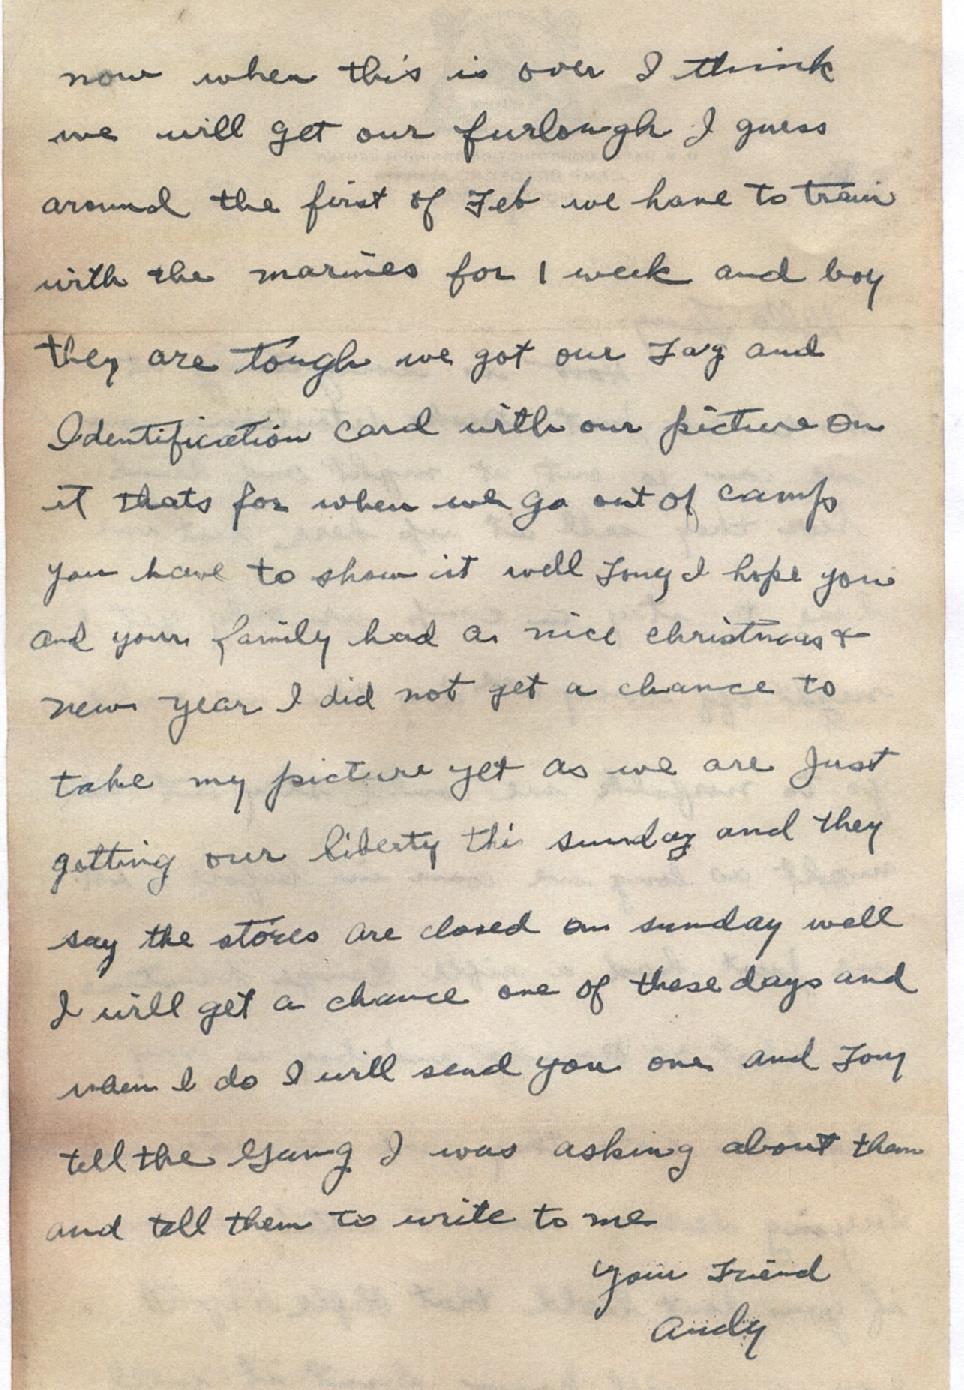 now when this is over I think
we will get our furlough I guess
around the first of Feb we have to train
with the marines for 1 week and boy
they are tough we got our Tag and
Identification card with our picture on
it thats for when we go out of camp
you have to show it well Tony I hope you
and your family had a nice christmas &
new year I did not get a chance to
take my picture yet as we are Just
getting our liberty this sunday and they
say the stores are closed on sunday well
I will get a chance one of these days and
when I do I will send you one and Tony
tell the Gang I was asking about them
and tell them to write to me
Your Friend
Andy